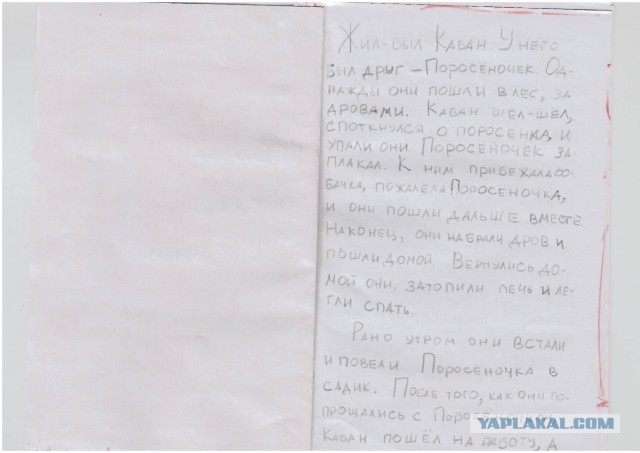 Жил-был Кабан. У него
был друг – Поросёночек. Од-
нажды они пошли в лес, за
дровами. Кабан шёл-шёл,
споткнулся о поросёнка, и
упали они Поросёночек за-
плакал. К ним прибежала со-
бачка, пожалела Поросёночка,
и они пошли дальше вместе.
Наконец, они набрали дров и
пошли домой. Вернулись до-
мой они, затопили печь и ле-
гли спать.
Рано утром они встали
и повели Поросёночка в
садик. После того, как они по-
прощались с
Кабан пошёл на работу, а
YAPLAKAL.COM